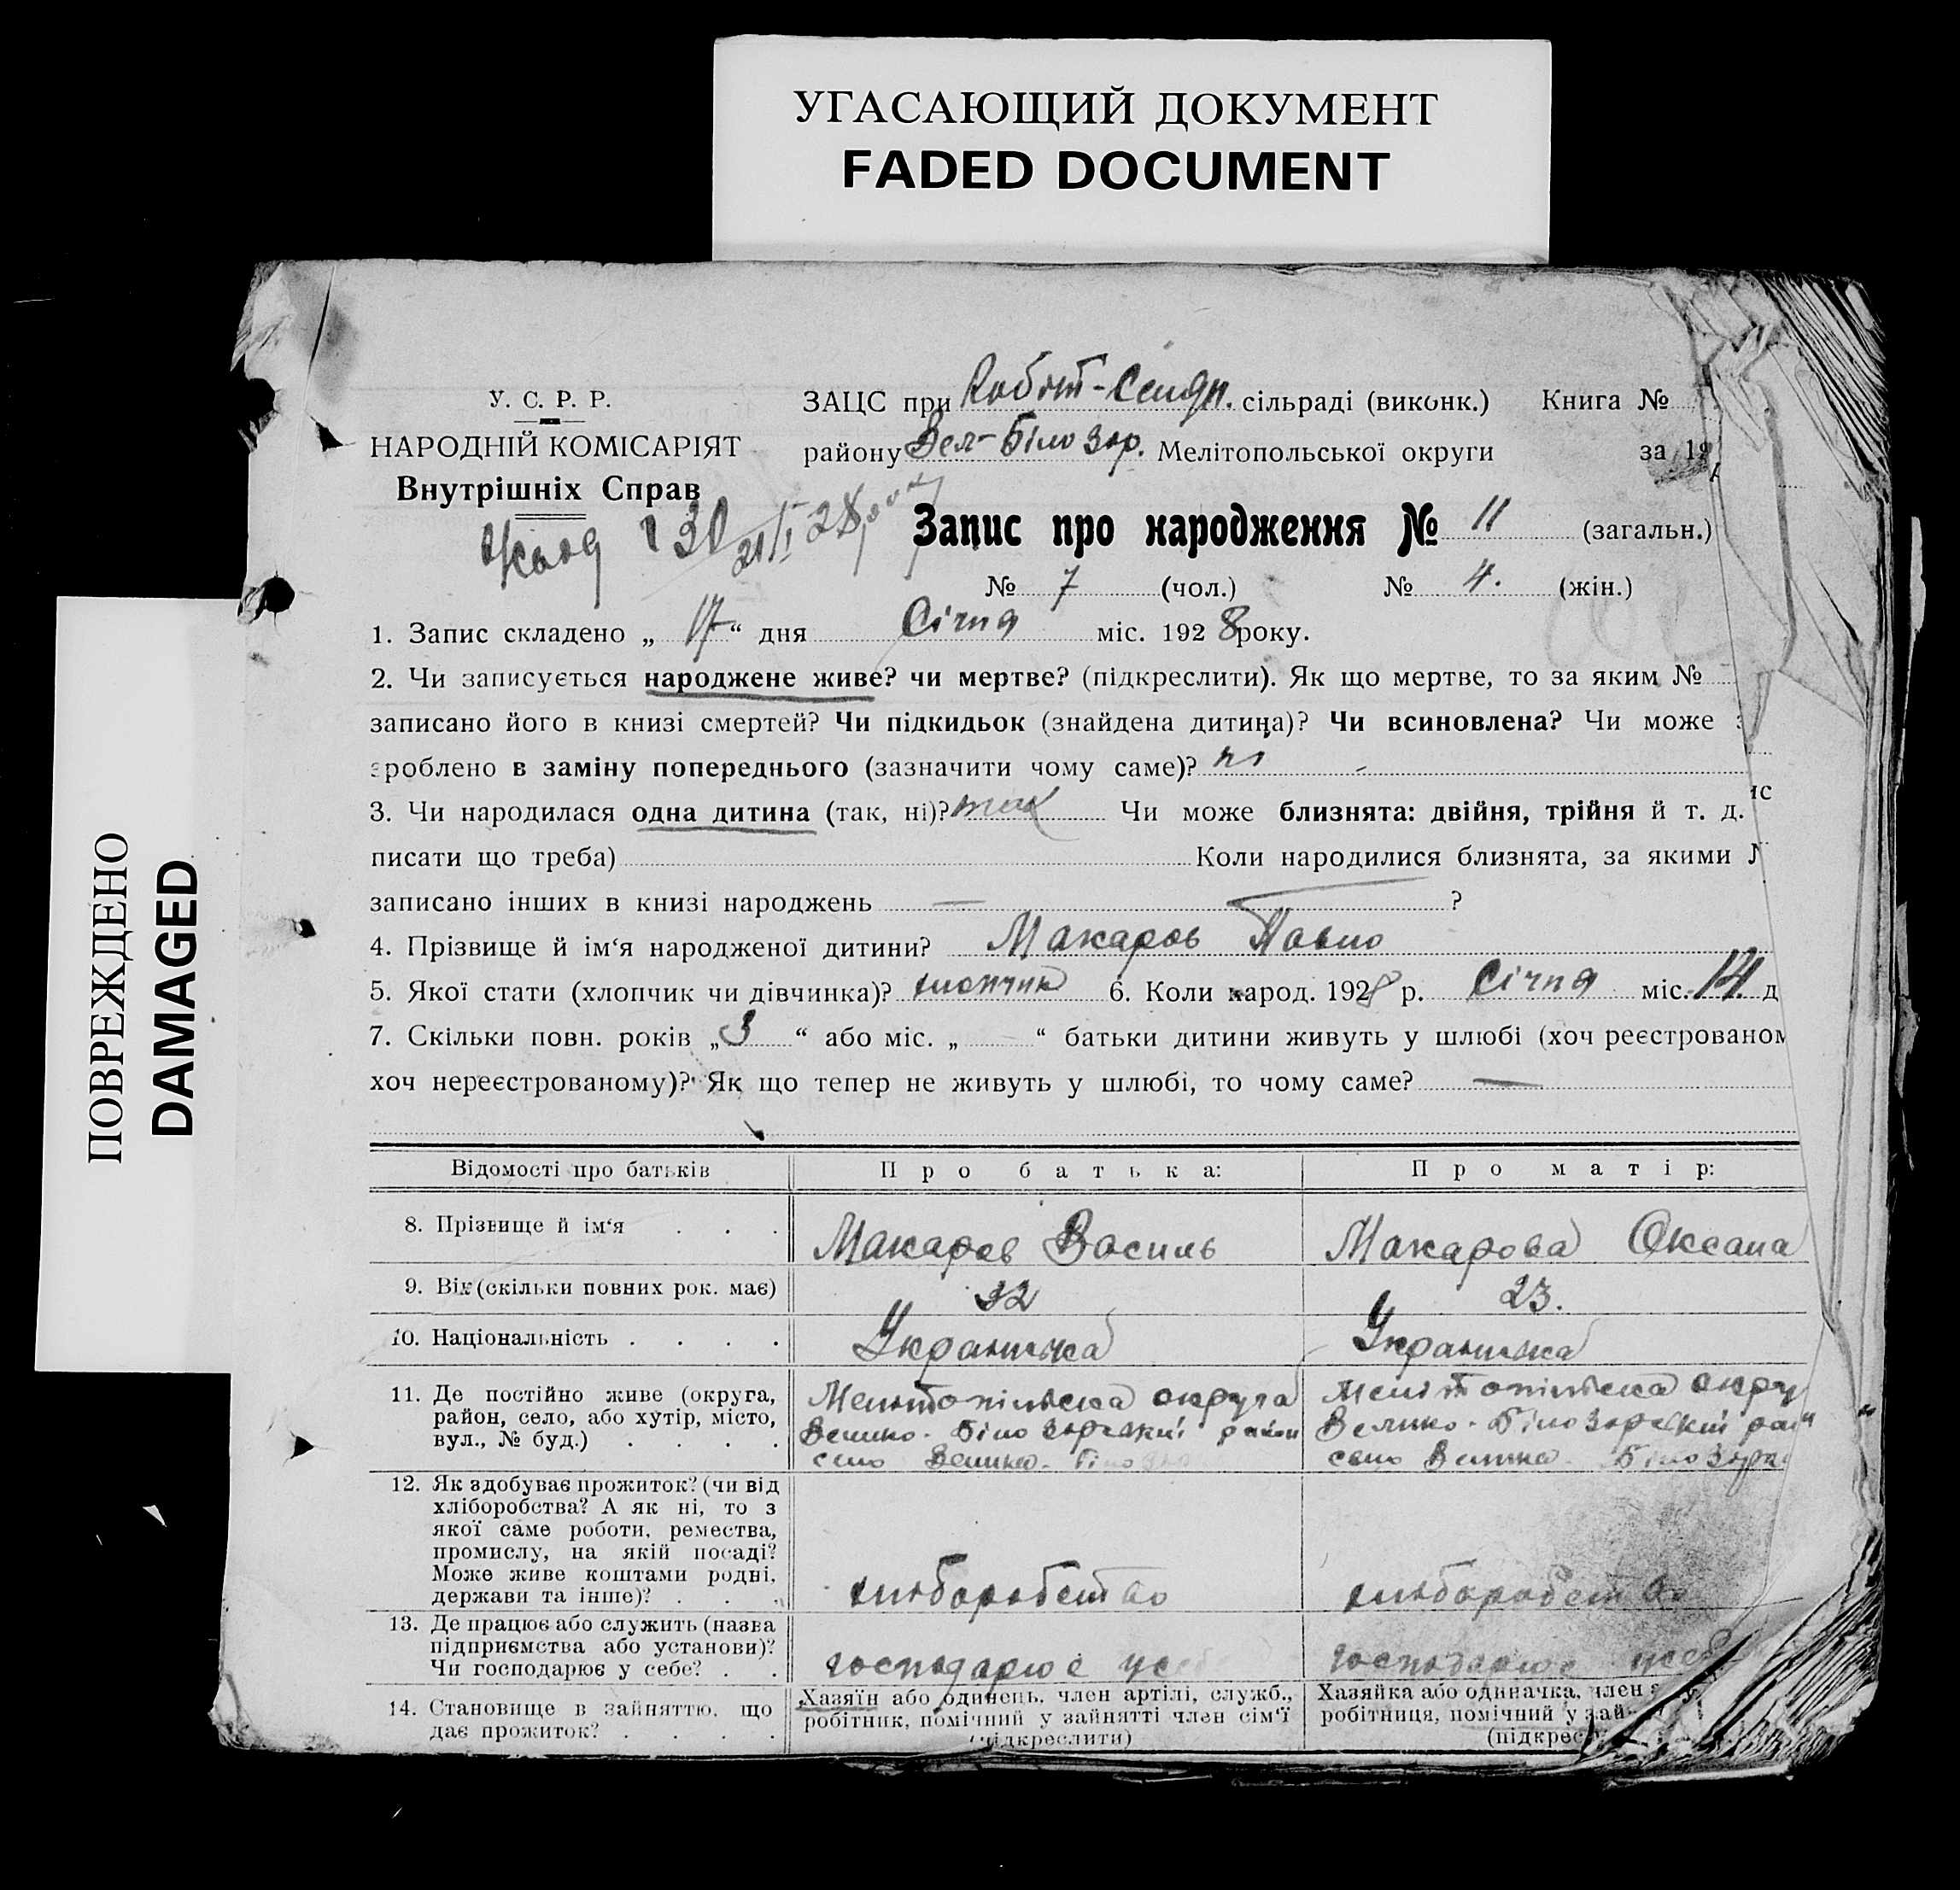 УГАСАЮЩИЙ ДОКУМЕНТ
FADED DOCUMENT
ПОВРЕЖДЕНО
DAMAGED
У. С. Р. Р.
НАРОДНІЙ КОМІСАРІЯТ
Внутрішніх Справ
ЗАЦС при сільраді (виконк.) Книга №
району Вел-Білозор. Мелітопольської округи за 19
Запис про народження № 11 (загальн.)
№ 7 (чол.) № 4. (жін.)
1. Запис складено „ 17 “ дня Січня міс. 1928 року.
2. Чи записується народжене живе? чи мертве? (підкреслити). Як що мертве, то за яким №
записано його в книзі смертей? Чи підкидьок (знайдена дитина)? Чи всиновлена? Чи може
зроблено в заміну попереднього (зазначити чому саме)? ні
3. Чи народилася одна дитина (так, ні)? так Чи може близнята: двійня, трійня й т. д.
писати що треба) Коли народилися близнята, за якими
записано інших в книзі народжень — ?
4. Прізвище й ім‘я народженої дитини? Макаров Павло
5. Якої стати (хлопчик чи дівчинка)? хлопчик 6. Коли народ. 1928 р. Січня міс. 14. д
7. Скільки повн. років „ 3 “ або міс. „ — “ батьки дитини живуть у шлюбі (хоч реєстрованом
хоч нереєстрованому)? Як що тепер не живуть у шлюбі, то чому саме? —
Відомості про батьків Про батька: Про матір:
8. Прізвище й ім‘я . . . Макаров Василь Макарова Оксана
9. Вік (скільки повних рок. має) 32 23.
10. Національність . . . . Українська Українська
11. Де постійно живе (округа,
район, село, або хутір, місто,
вул., № буд.) . . . .
Мелітопільська округа
Велико-Білозорський район
село Велика-Біло
Мелітопільська округ
Велико-Білозорський рай
село Велика Білозорка
12. Як здобуває прожиток? (чи від
хліборобства? А як ні, то з
якої саме роботи, ремества,
промислу, на якій посаді?
Може живе коштами родні,
держави та інше)? . . .
хліборобство хліборобство
13. Де працює або служить (назва
підприємства або установи)?
Чи господарює у себе? . .
господарює у себе господарює у себе
14. Становище в зайняттю, що
дає прожиток? . . . .
Хазяїн або одинець, член артілі, служб.,
робітник, помічний у зайнятті член сім‘ї
(підкреслити)
Хазяйка або одиначка, член
робітниця, помічний у зай
(підкрес